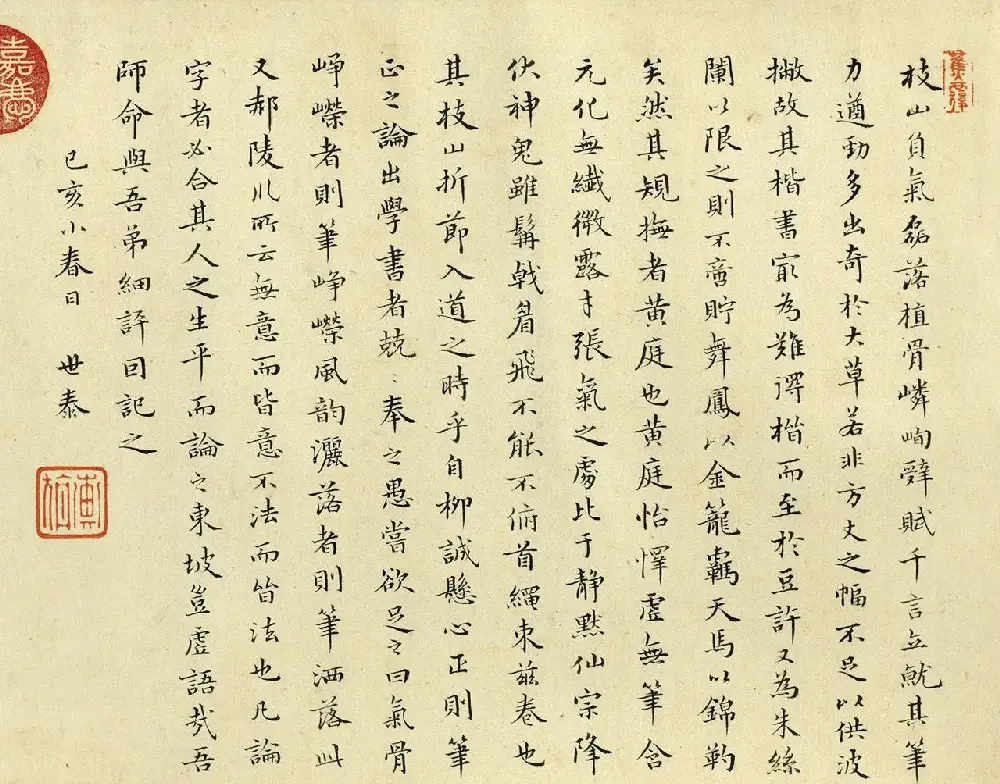 枝山負氣磊落植骨嶙峋辭賦千言立就其筆
力遒勁多出奇於大草若非方丈之幅不足以供波
撇故其楷書最為難得楷而至於豆許又為朱絲
闌以限之則不啻貯舞鳳以金籠羈天馬以錦勒
矣然其規撫者黃庭也黃庭怡懌虛無筆含
元化無纖微露才張氣之處比于靜默仙宗降
伏神鬼雖髯戟眉飛不能不俯首繩束茲卷也
其枝山折節入道之時乎自柳誠懸心正則筆
正之論出學書者兢〻奉之愚嘗欲足之曰氣骨
崢嶸者則筆崢嶸風韵灑落者則筆洒落此
又郝陵川所云無意而皆意不法而皆法也凡論
字者必合其人之生平而論之東坡豈虛語哉吾
師命與吾弟細評因記之
己亥小春日 世泰